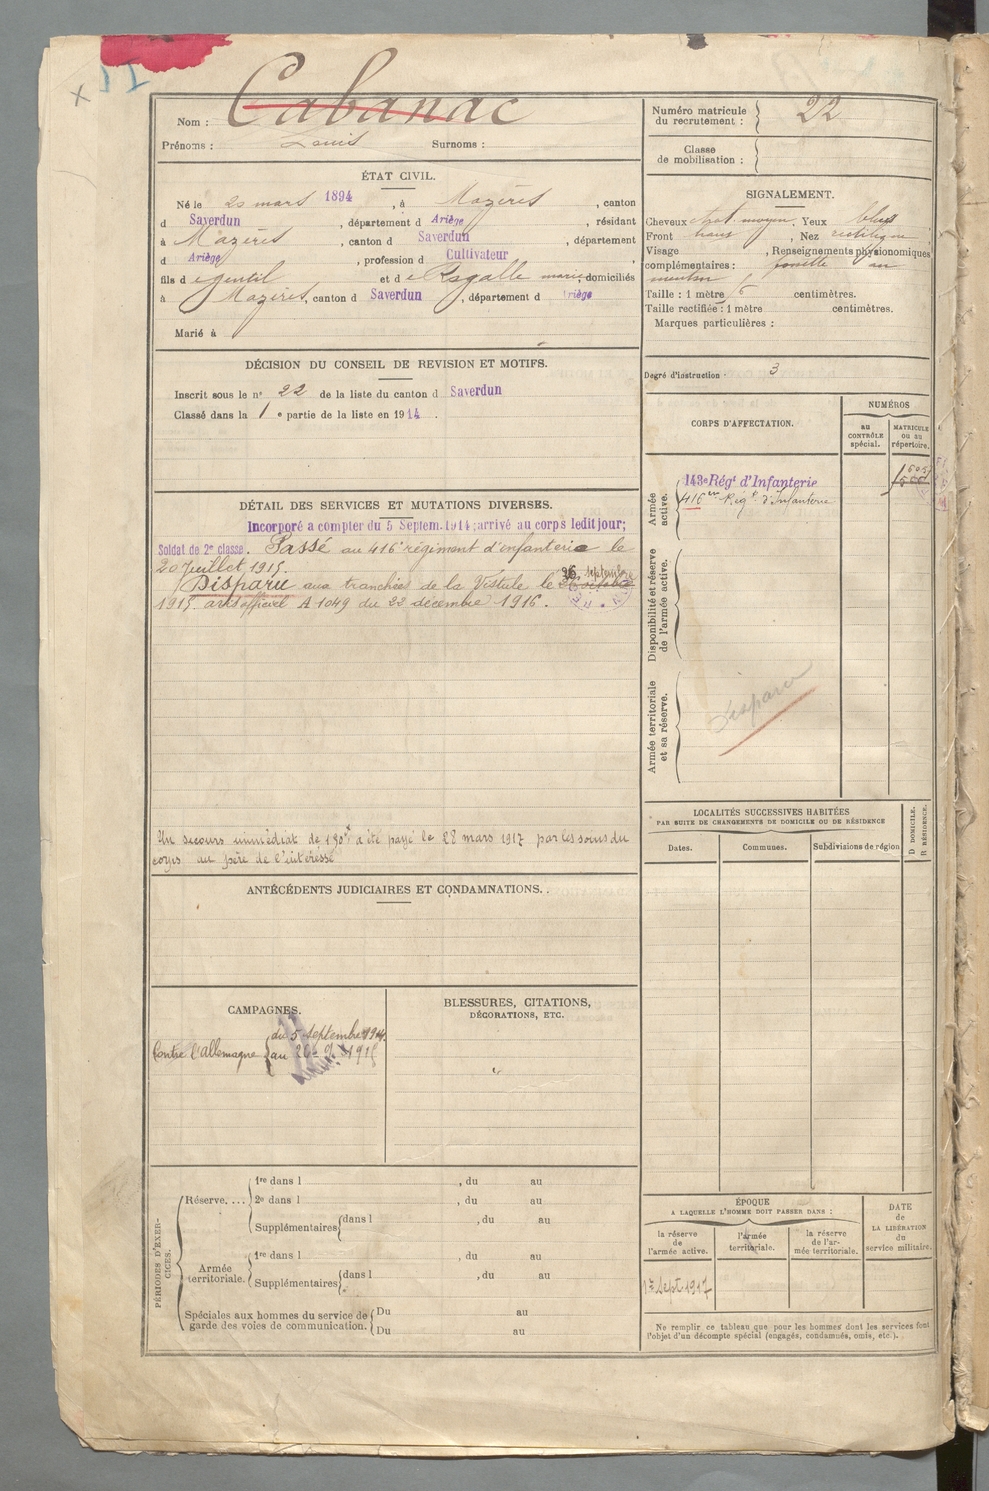 Nom : Cabanac
Prénoms : Louis Surnoms :
Numéro matricule du recrutement : 22
Classe de mobilisation :
ÉTAT CIVIL.
Né le 20 mars 1894, à Mazères, canton
d Saverdun, département d Ariège, résidant
à Mazères, canton d Saverdun, département
d Ariège, profession d Cultivateur,
fils d e Gentil et d e marie, domiciliés
à Mazères, canton d Saverdun, département d Ariège
Marié à
SIGNALEMENT.
Cheveux chat. moyen. Yeux bleus
Front , Nez rectiligne
Visage , Renseignements physionomiques
complémentaires : fossette au
menton
Taille : 1 mètre centimètres.
Taille rectifiée : 1 mètre centimètres.
Marques particulières :
Degré d'instruction : 3
DÉCISION DU CONSEIL DE REVISION ET MOTIFS.
Inscrit sous le n° 22 de la liste du canton d Saverdun
Classé dans la 1 e partie de la liste en 1914.
DÉTAIL DES SERVICES ET MUTATIONS DIVERSES.
Incorporé a compter du 5 Septem. 1914; arrivé au corps ledit jour;
Soldat de 2e classe. Passé au 416e régiment d'infanterie le
20 Juillet 1915.
Disparu aux tranchées de la Vistule le 26 septembre
1915 avis officiel A 1049 du 22 décembre 1916.
Un secours immédiat de 150f a été payé le 28 mars 1917 par les soins du
corps au père de l'intéressé
CORPS D'AFFECTATION.
NUMÉROS
AU CONTRÔLE spécial.
MATRICULE ou au répertoire.
Armée active.
143e Régt d'Infanterie
416em Régt d'Infanterie
Disponibilité et réserve de l'armée active.
Armée territoriale et sa réserve.
Disparu
LOCALITÉS SUCCESSIVES HABITÉES
PAR SUITE DE CHANGEMENTS DE DOMICILE OU DE RÉSIDENCE
Dates. Communes. Subdivisions de région
D DOMICILE.
R RÉSIDENCE.
ANTÉCÉDENTS JUDICIAIRES ET CONDAMNATIONS.
CAMPAGNES.
Contre l'allemagne du 5 septembre 1914
au 1915
BLESSURES, CITATIONS,
DÉCORATIONS, ETC.
PÉRIODES D'EXERCICES.
Réserve.... 1re dans l , du au
2e dans l , du au
Supplémentaires dans l , du au
du au
Armée territoriale. 1re dans l , du au
Supplémentaires dans l , du au
Spéciales aux hommes du service de garde des voies de communication. Du au
Du au
ÉPOQUE
A LAQUELLE L'HOMME DOIT PASSER DANS :
la réserve de l'armée active.
l'armée territoriale.
la réserve de l'armée territoriale.
DATE de LA LIBÉRATION du service militaire.
1er Sept. 1917
Ne remplir ce tableau que pour les hommes dont les services font
l'objet d'un décompte spécial (engagés, condamnés, omis, etc.).